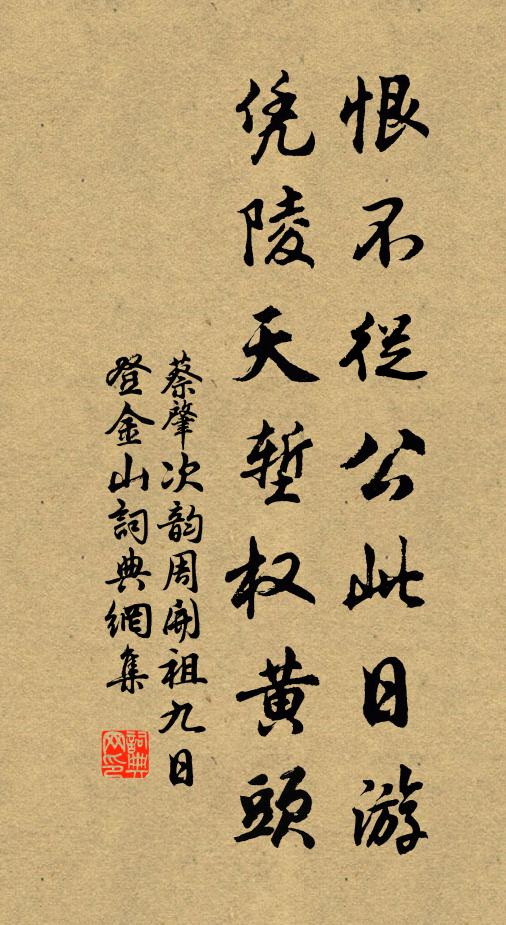 恨不從公此日游
凭陵天塹权黄頭
蔡肇次韵周開祖九日
登金山詞典網集
詞典网印